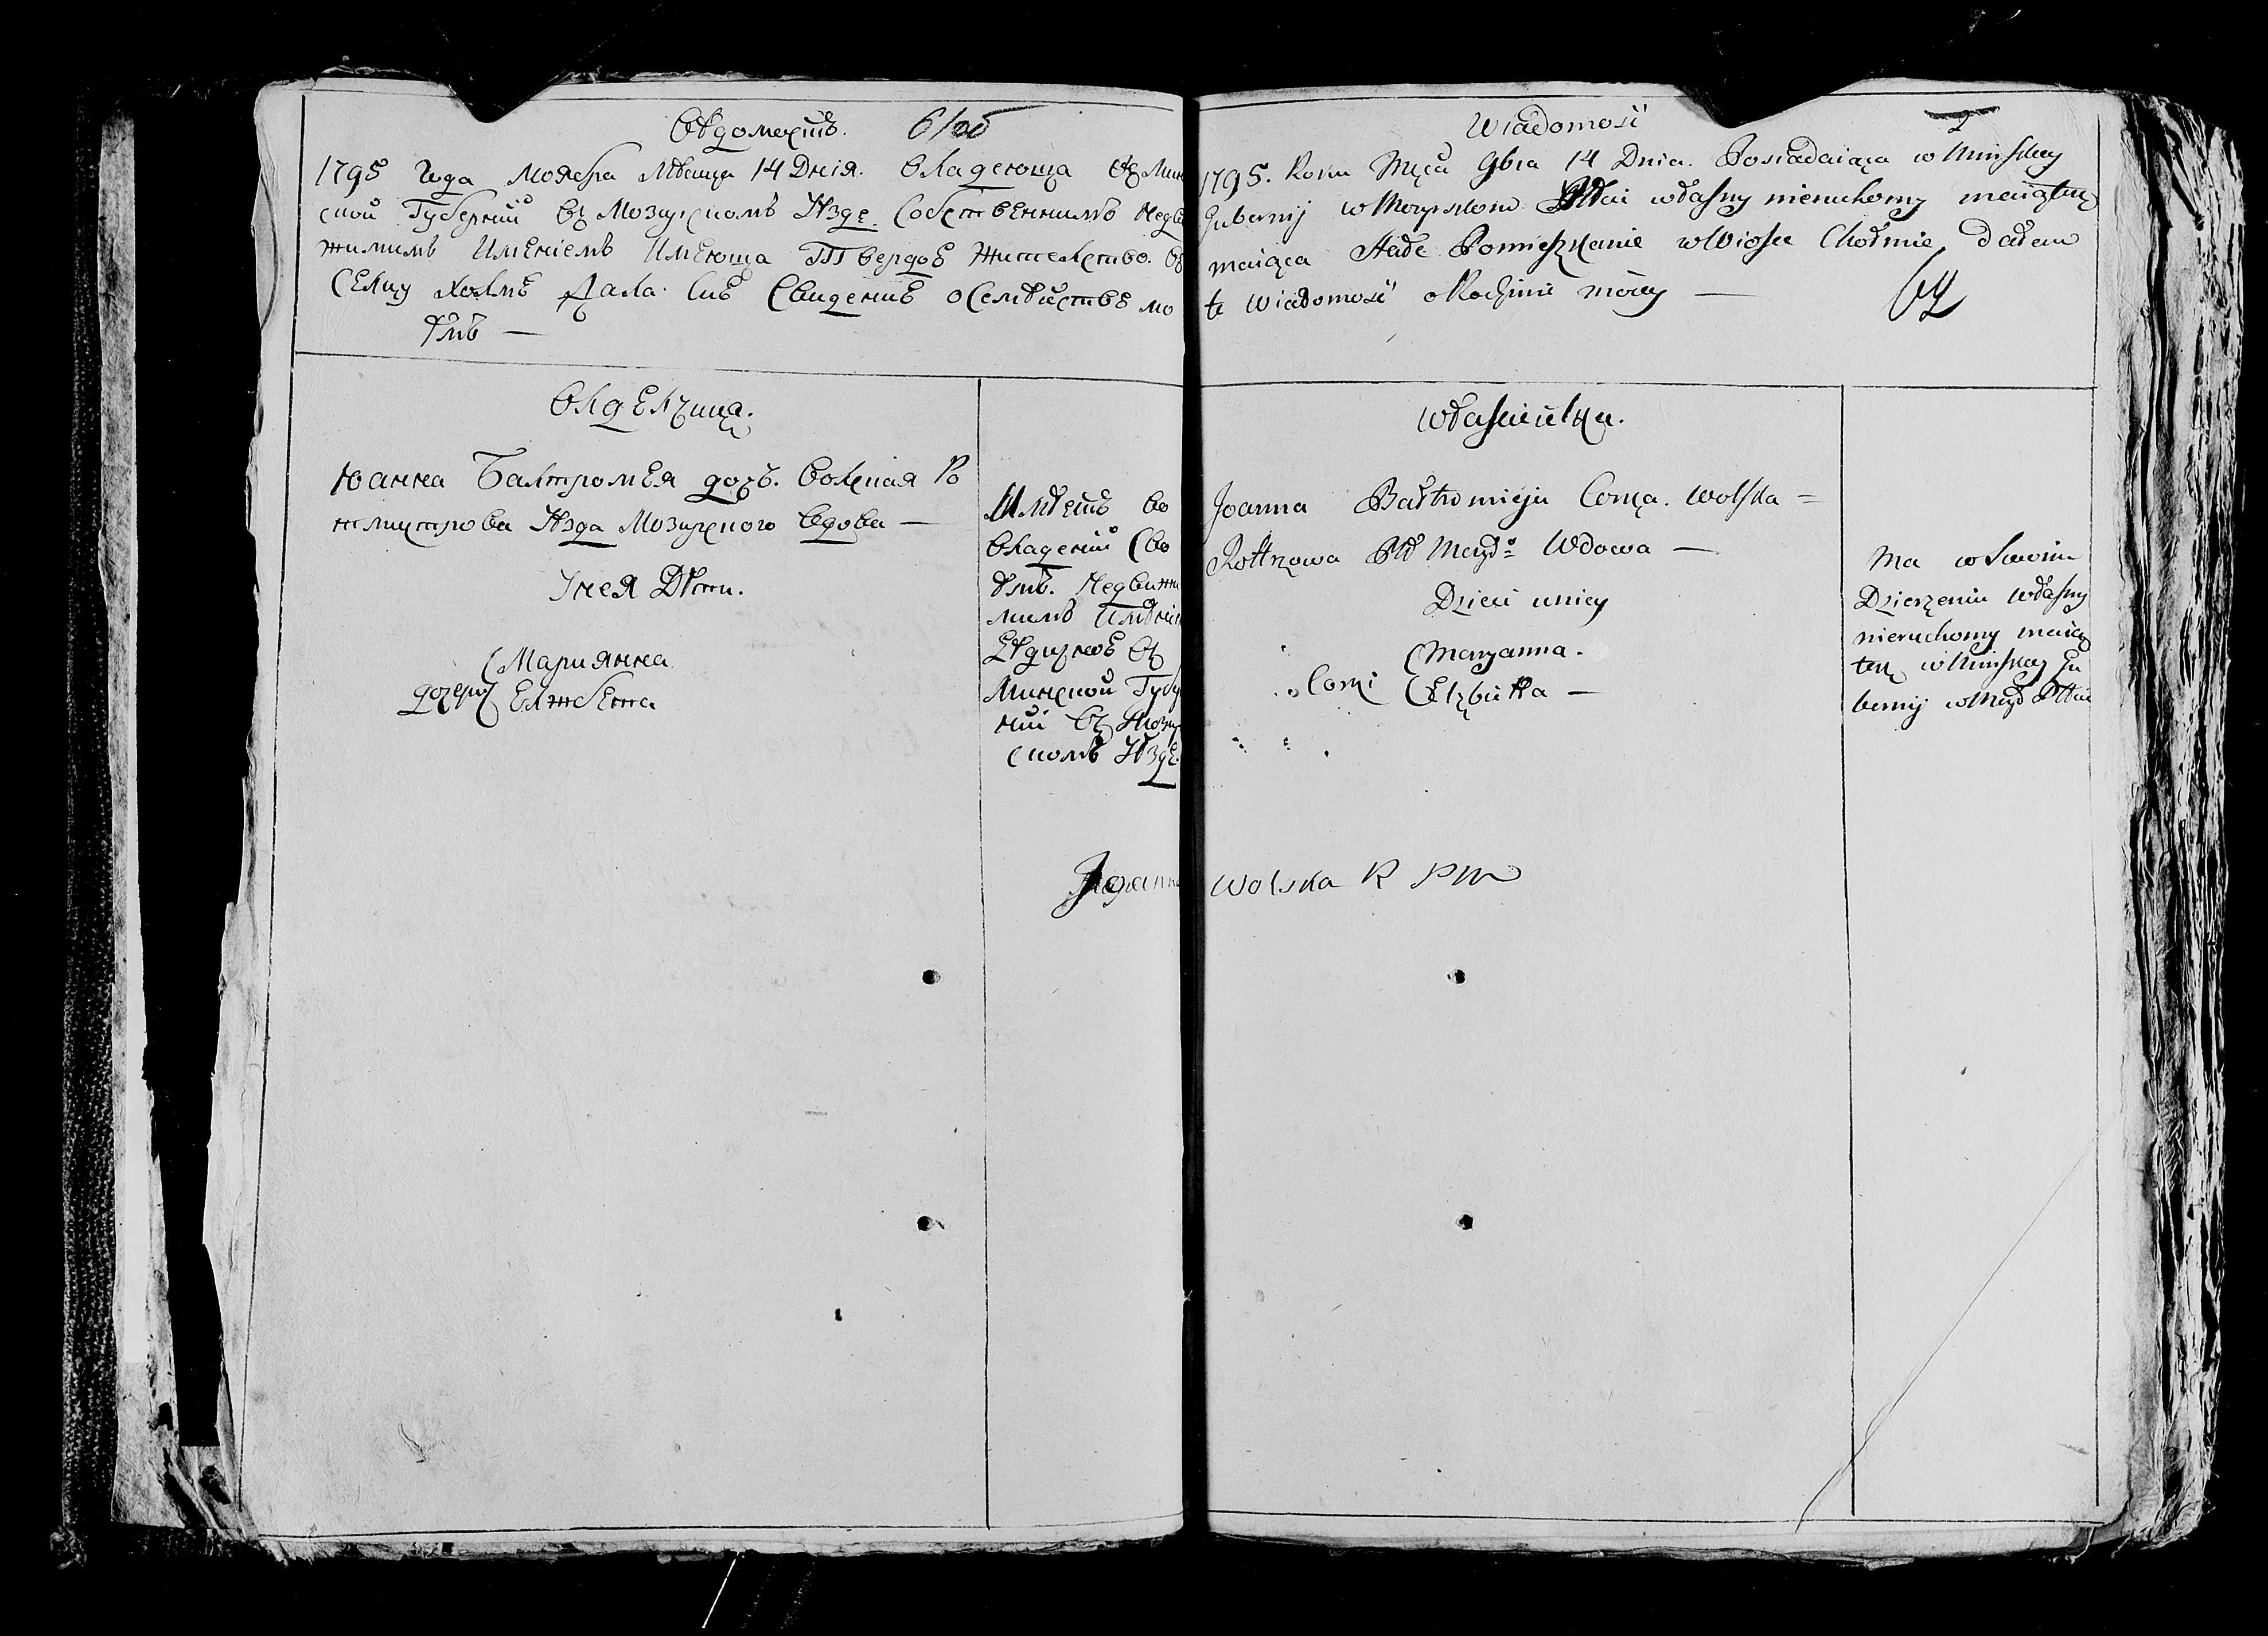 Вѣдомость. 6/об
1795 Года Моября Мѣсяца 14 Днія. Владеюща въ Мин
ской Губерніи въ Мозирскомъ Уѣзде Собственнимъ Недви
жимимъ Именіемъ Имеюща Твердое Жителство. въ
Селцу Холмѣ Дала сие Сведение о Семѣйстве мо
ѣмъ —
Владелчица.
Юанна Балтромея дочъ. Волская Ро
тмистрова Уѣзда Мозирского Вдова —
У нея Дѣти.
Марианна
дочери Елжбета
Имѣетъ во
владении Сво
ѣмъ. Недвижи
мимъ Имѣни
въ
Минской Губе
рнии въ Мозир
скомъ Уѣзде.
Wiadomość 7
1795. Roku Mcą 9bra 14 Dnia. Posiadaiąca w Minskey
Gubernij w Mozyrskom Pttcie własny nieruchomy maiątek
maiąca Stałe Pomieszkanie w Wiosce Chołmie, dałem
te Wiadomość o Rodzinie moiey —
Właścicielka.
Joanna Bałtromieja Corka. Wolska =
Rottrzowa Ptt Mozyd Wdowa —
Dzieci u niey
Maryanna.
Corki Elzbietta —
Ma w Swoim
Dzierżeniu Własny
nieruchomy maią
tek w Minskey Gu
bernij w Mozyd Pttcie
Joanna Wolska R P M